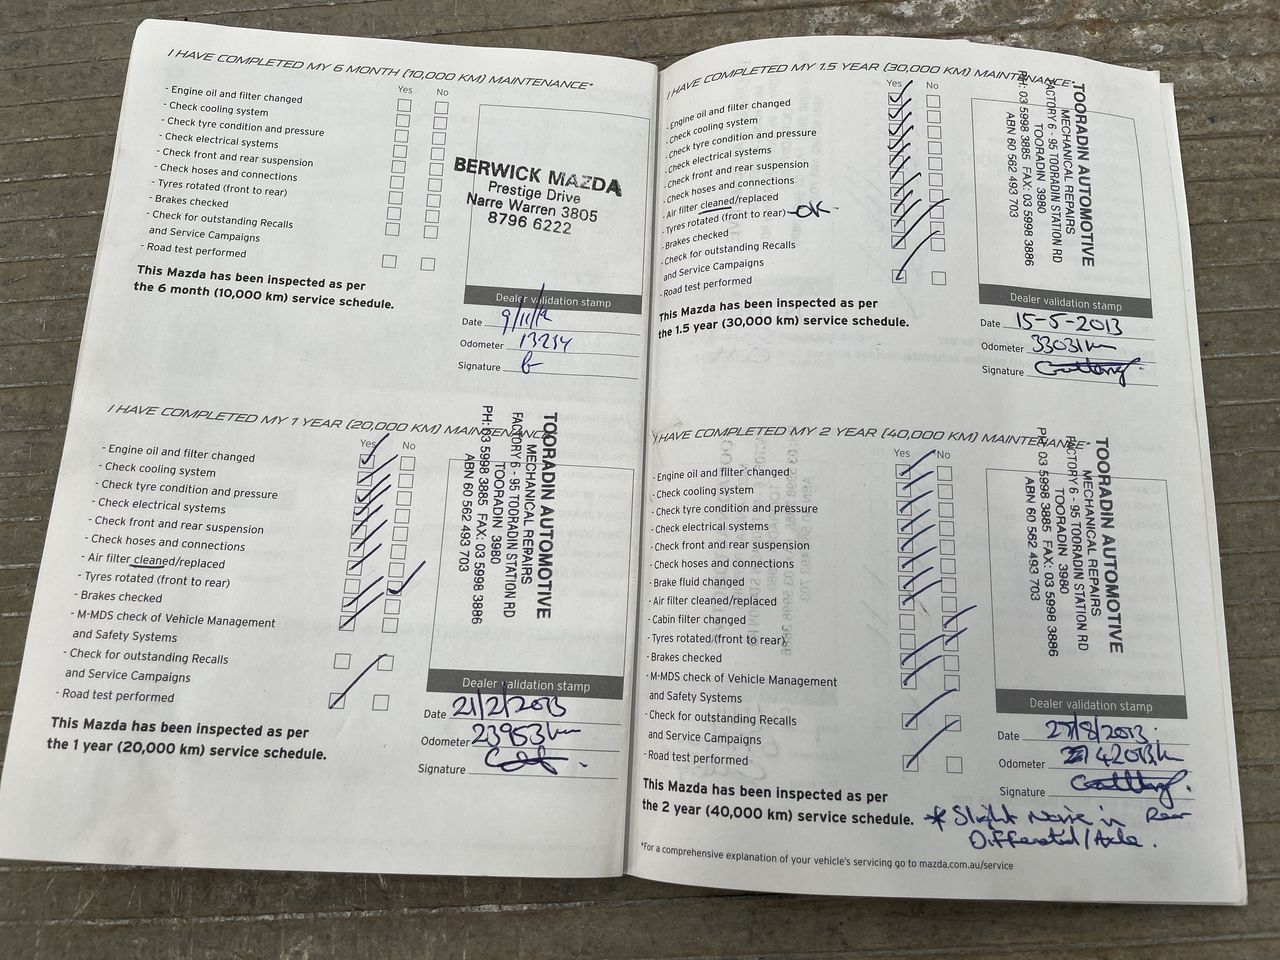 I HAVE COMPLETED MY 6 MONTH (10,000 KM) MAINTENANCE*
Yes No
- Engine oil and filter changed
- Check cooling system
- Check tyre condition and pressure
- Check electrical systems
- Check front and rear suspension
- Check hoses and connections
- Tyres rotated (front to rear)
- Brakes checked
- Check for outstanding Recalls
and Service Campaigns
- Road test performed
This Mazda has been inspected as per
the 6 month (10,000 km) service schedule.
BERWICK MAZDA
Prestige Drive
Narre Warren 3805
8796 6222
Dealer validation stamp
Date 9/11/12
Odometer 13234
Signature
I HAVE COMPLETED MY 1 YEAR (20,000 KM) MAINTENANCE*
Yes No
- Engine oil and filter changed
- Check cooling system
- Check tyre condition and pressure
- Check electrical systems
- Check front and rear suspension
- Check hoses and connections
- Air filter cleaned/replaced
- Tyres rotated (front to rear)
- Brakes checked
- M-MDS check of Vehicle Management
and Safety Systems
- Check for outstanding Recalls
and Service Campaigns
- Road test performed
This Mazda has been inspected as per
the 1 year (20,000 km) service schedule.
TOORADIN AUTOMOTIVE
MECHANICAL REPAIRS
FACTORY 6 - 95 TOORADIN STATION RD
TOORADIN 3980
PH: 03 5998 3885 FAX: 03 5998 3886
ABN 60 562 493 703
Dealer validation stamp
Date 21/2/2013
Odometer 23953km
Signature
I HAVE COMPLETED MY 1.5 YEAR (30,000 KM) MAINTENANCE*
Yes No
- Engine oil and filter changed
- Check cooling system
- Check tyre condition and pressure
- Check electrical systems
- Check front and rear suspension
- Check hoses and connections
- Air filter cleaned/replaced
- Tyres rotated (front to rear) -OK-
- Brakes checked
- Check for outstanding Recalls
and Service Campaigns
- Road test performed
This Mazda has been inspected as per
the 1.5 year (30,000 km) service schedule.
TOORADIN AUTOMOTIVE
MECHANICAL REPAIRS
FACTORY 6 - 95 TOORADIN STATION RD
TOORADIN 3980
PH: 03 5998 3885 FAX: 03 5998 3886
ABN 60 562 493 703
Dealer validation stamp
Date 15-5-2013
Odometer 33031km
Signature
I HAVE COMPLETED MY 2 YEAR (40,000 KM) MAINTENANCE*
Yes No
- Engine oil and filter changed
- Check cooling system
- Check tyre condition and pressure
- Check electrical systems
- Check front and rear suspension
- Check hoses and connections
- Brake fluid changed
- Air filter cleaned/replaced
- Cabin filter changed
- Tyres rotated (front to rear)
- Brakes checked
- M-MDS check of Vehicle Management
and Safety Systems
- Check for outstanding Recalls
and Service Campaigns
- Road test performed
This Mazda has been inspected as per
the 2 year (40,000 km) service schedule.
TOORADIN AUTOMOTIVE
MECHANICAL REPAIRS
FACTORY 6 - 95 TOORADIN STATION RD
TOORADIN 3980
PH: 03 5998 3885 FAX: 03 5998 3886
ABN 60 562 493 703
Dealer validation stamp
Date 27/8/2013
Odometer 42013km
Signature
* Slight Noise in Rear
Differential/Axle.
*For a comprehensive explanation of your vehicle's servicing go to mazda.com.au/service